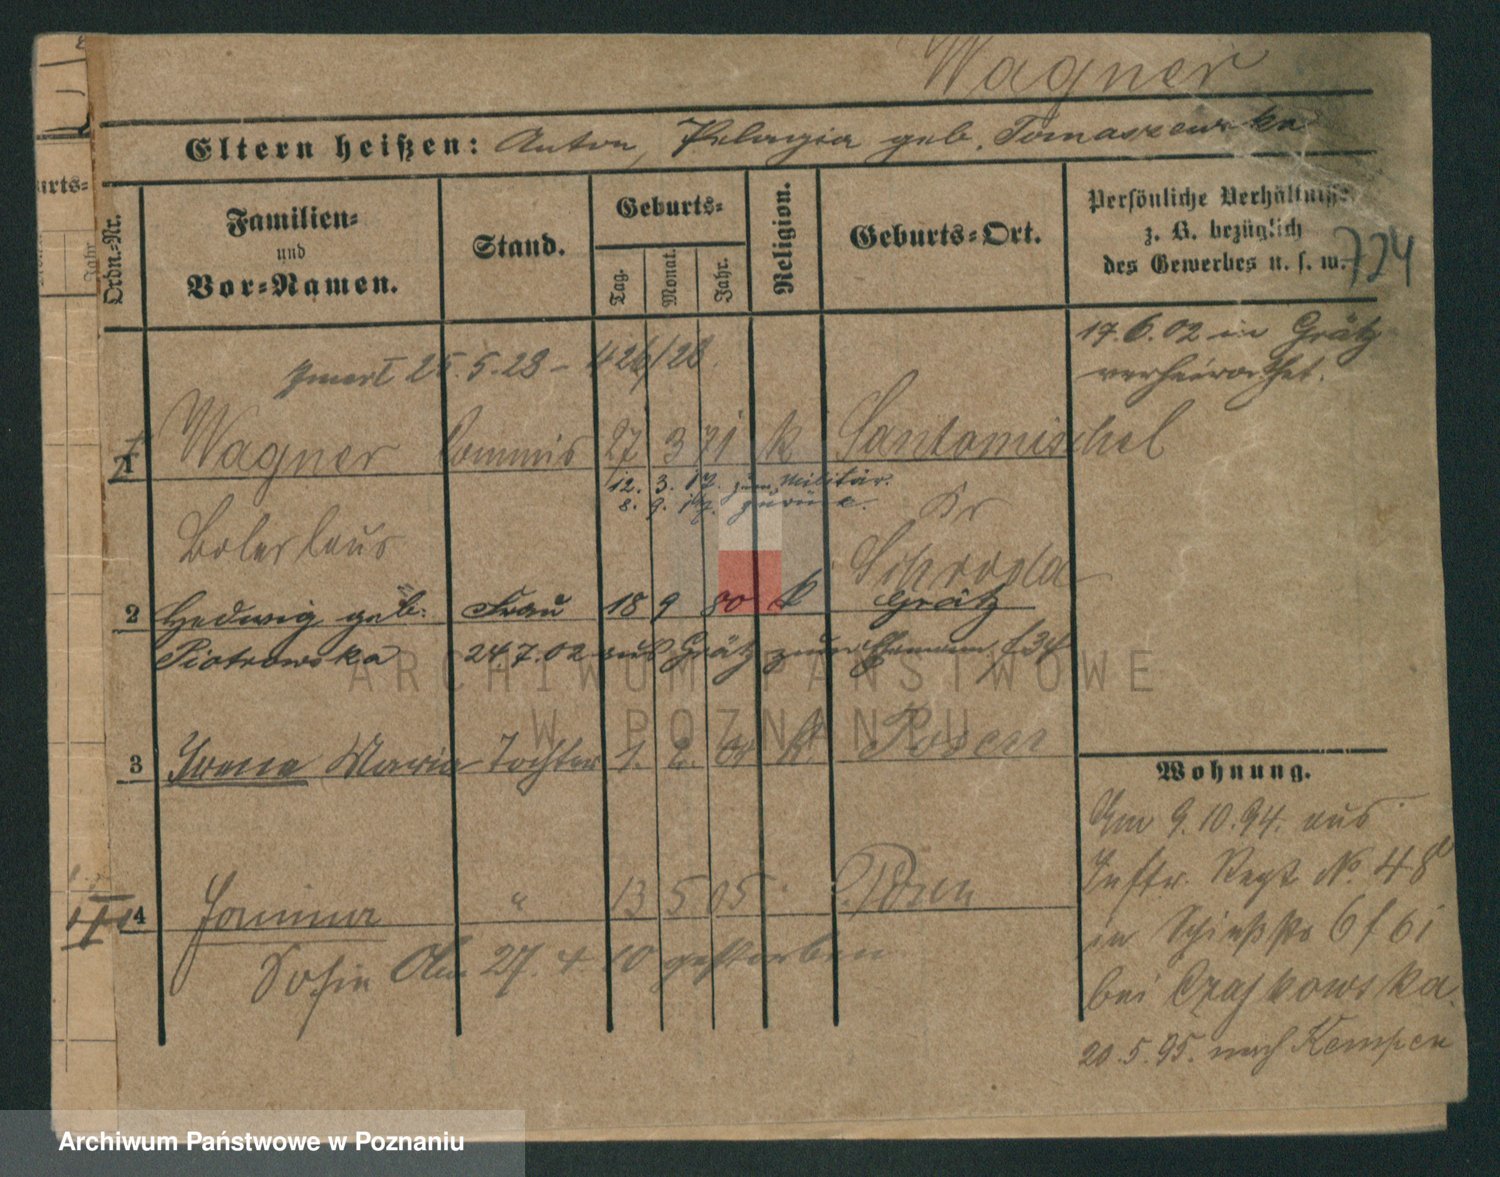 Wagner
Eltern heißen: Anton, Pelagia geb. Tomaszewska
Ordn.-Nr.
Familien- und Vor-Namen.
Stand.
Geburts-
Tag.
Monat.
Jahr.
Religion.
Geburts-Ort.
Persönliche Verhältnisse
z. B. bezüglich
des Gewerbes u. s. w.
724
17.6.02 in Grätz
verheirathet.
25.5.28 – 426/28
1 Wagner Commis 27 3 71 k Santomischel
12. 3. 17. zum Militär.
8. 9. 17. zurück.
Kr
Boleslaus
Schroda
2 Hedwig geb. Frau 18 9 80 k Grätz
Piotrowska 24.7.02 aus Grätz zum Ehemann
3 Irene Maria Tochter 1. k. Posen
4 Janina " 13 5 05 Posen
Sofie Am 27. 4. 10 gestorben
Wohnung.
Am 9.10.94. aus
Inftr. Regt No. 48
in
bei Czajkowska.
20.5.95. nach Kempen
urts-
Jahr
ARCHIWUM PAŃSTWOWE
W POZNANIU
Archiwum Państwowe w Poznaniu